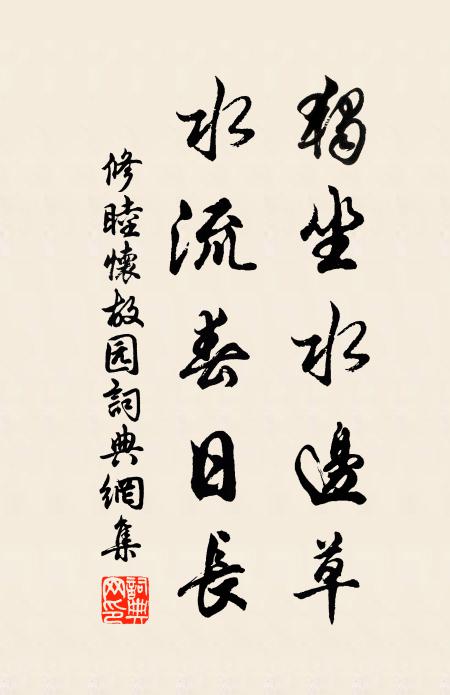 獨坐水邊草
水流春日長
修睦懷故园詞典網集
詞典网印